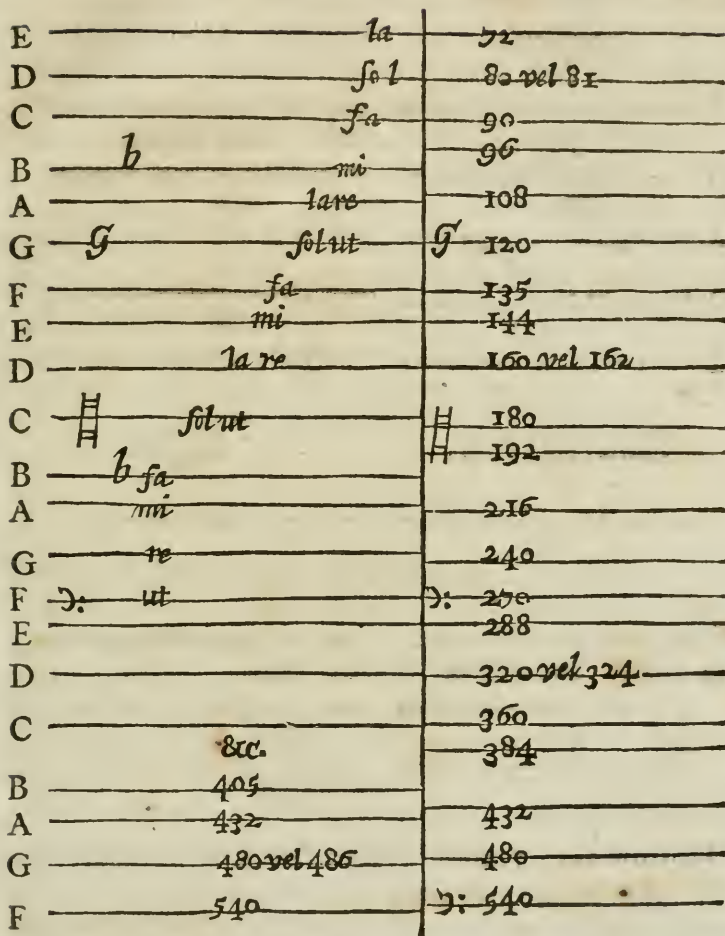 E la 72
D ſol 80 vel 81
C fa 90
96
B b mi
A la re 108
G G ſol ut G 120
F fa 135
E mi 144
D la re 160 vel 162
C ſol ut 180
192
B b fa
A mi 216
G re 240
F ut 270
E 288
D 320 vel 324
C 360
&c. 384
B 405
A 432 432
G 480 vel 486 480
F 540 540